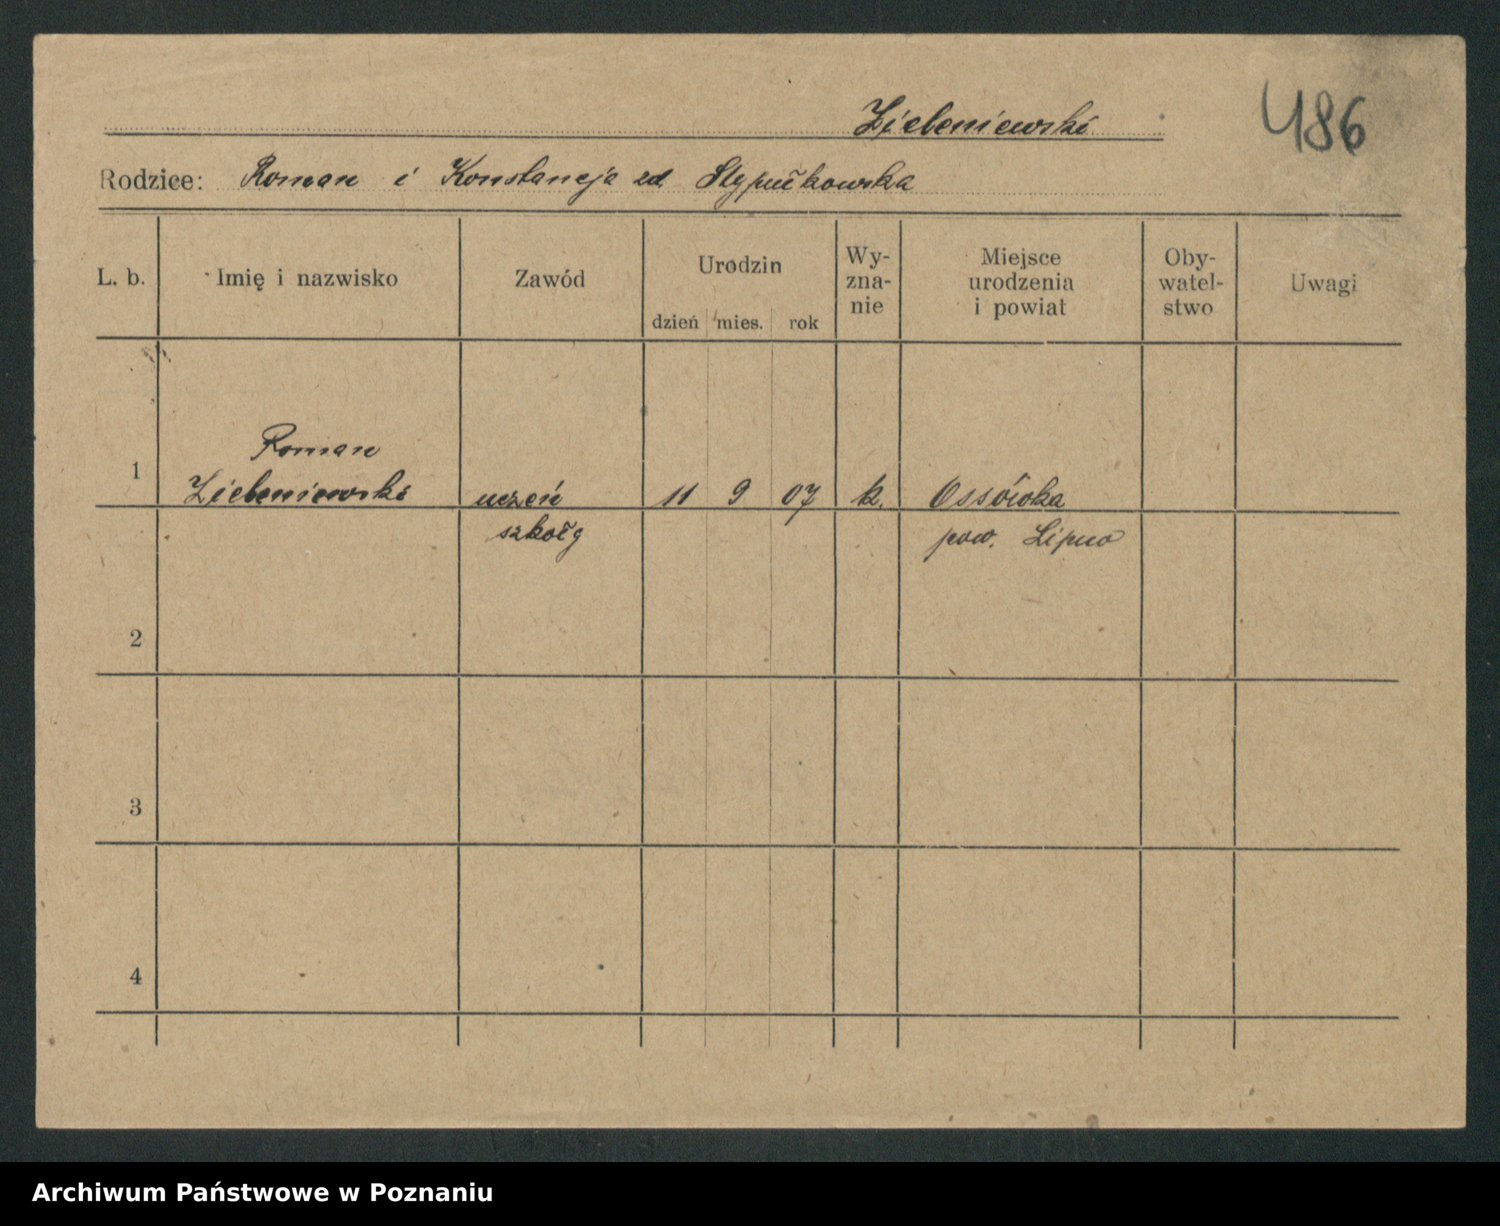 Zieleniewski
486
Rodzice: Roman i Konstancja zd Stypułkowska
L. b. Imię i nazwisko Zawód Urodzin Wy- Miejsce Oby- Uwagi
zna- urodzenia watel-
nie i powiat stwo
dzień mies. rok
Roman
1 Zieleniewski uczeń 11 9 07 k. Ossówka
szkoły pow. Lipno
2
3
4
Archiwum Państwowe w Poznaniu